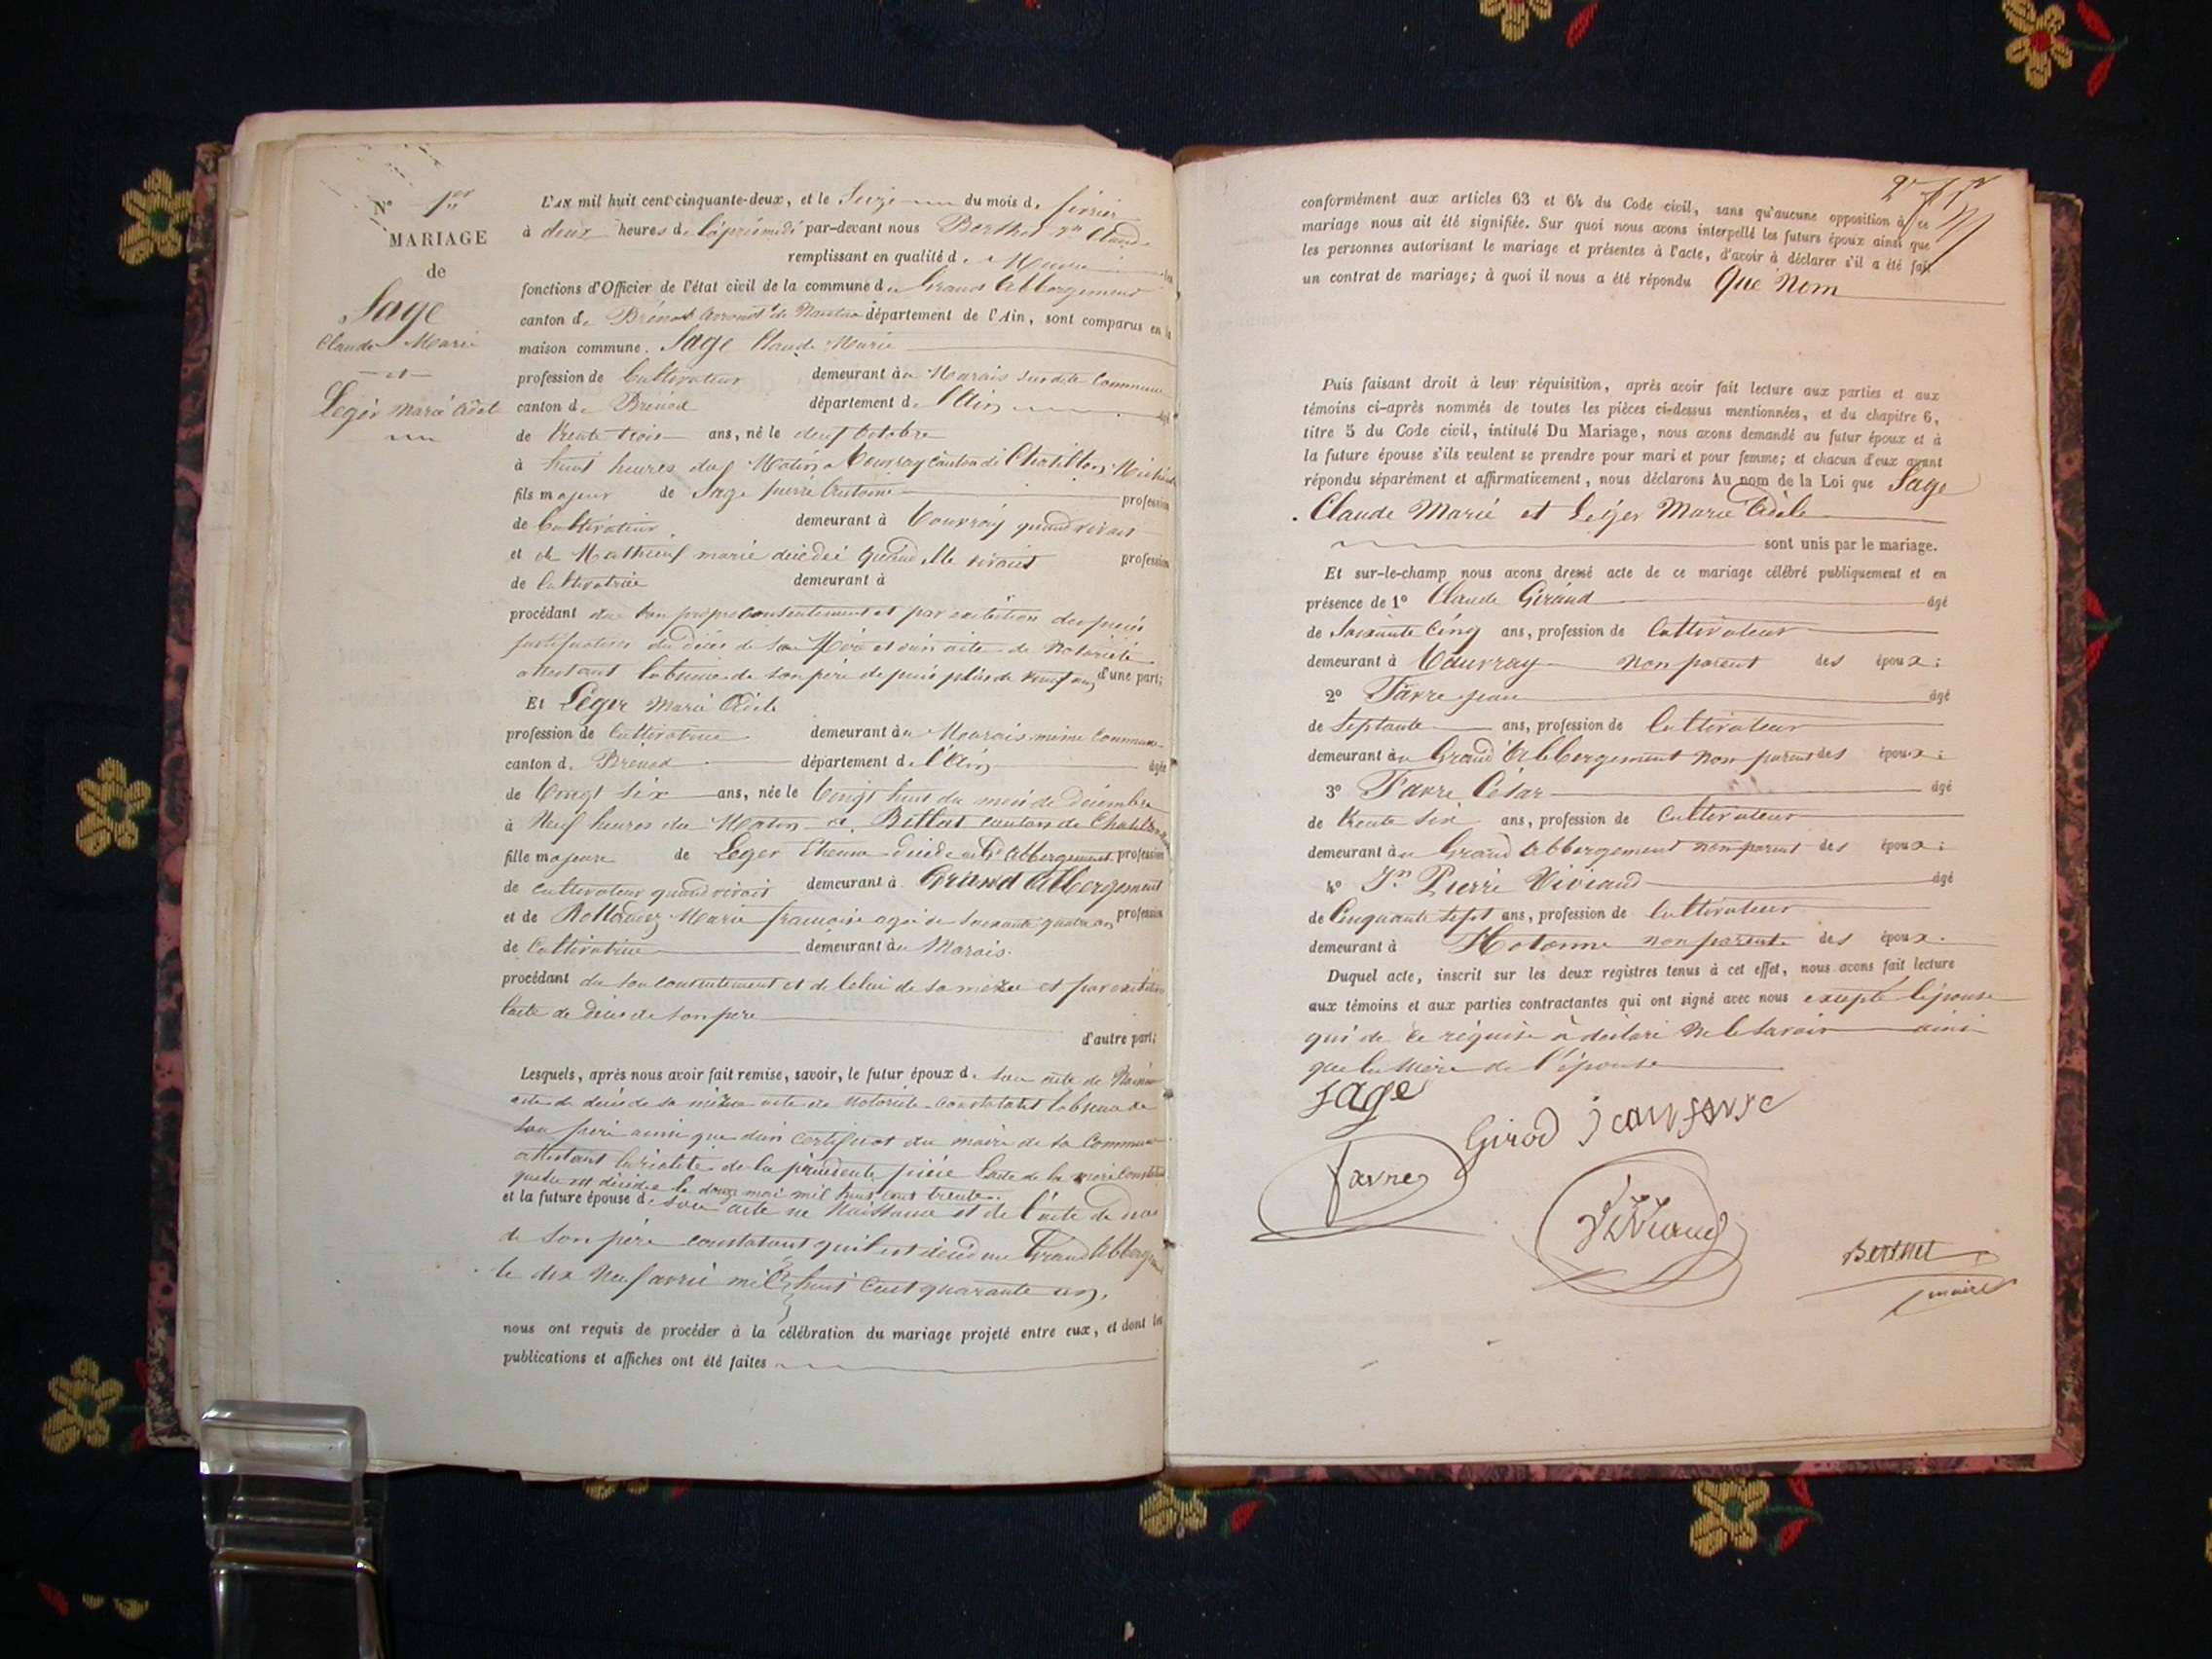 N° 1er
MARIAGE
de
Sage
Claude Marie
et
Leger Marie Adele
L'AN mil huit cent cinquante-deux, et le Seize du mois de février
à deux heures de l'après midi par-devant nous Berthet Jn Claude
remplissant en qualité de Maire les
fonctions d'Officier de l'état civil de la commune du Grand Abbergement
canton de Brénod arrondt de Nantua département de l'Ain, sont comparus en la
maison commune. Sage Claude Marie
profession de Cultivateur demeurant au Marais susdite Commune
canton de Brénod département de l'Ain âgé
de trente trois ans, né le neuf octobre
à huit heures du Matin a Vouvray canton de Chatillon Michaille
fils majeur de Sage pierre Antoine profession
de Cultivateur demeurant à Vouvray quand vivait
et de Mathieuf marie décédée quand elle vivait profession
de Cultivatrice demeurant à
procédant de son propre consentement et par exibition des pièces
justificatives du décès de sa Mère et d'un acte de Notoriété
attestant l'absence de son père depuis plus de d'une part;
Et Léger Marie Adèle
profession de Cultivatrice demeurant au Marais même Commune
canton de Brénod département de l'Ain âgée
de Vingt six ans, née le Vingt huit du mois de décembre
à Neuf heures du Matin a Billiat canton de Chatillon
fille majeure de Leger Etienne décédé au Gd Abbergement profession
de cultivateur quand vivait demeurant à Grand Abbergement
et de Marie françoise agée de soixante quatre ans profession
de Cultivatrice demeurant au Marais.
procédant de son consentement et de celui de sa mere et par exibition
l'acte de décès de son père
d'autre part;
Lesquels, après nous avoir fait remise, savoir, le futur époux de son acte de Naissance
acte de décès de sa mère acte de notoriété constatant l'absence de
son père ainsi que d'un certificat du maire de sa Commune
attestant la réalité de la précédente pièce l'acte de la mère constatant
quelle est décédée le douze mai mil huit cent trente.
et la future épouse de son acte de Naissance et de l'acte de décès
de son père constatant qu'il est décédé au Grand Abbergement
le dix Neuf avril mil huit cent quarante un,
nous ont requis de procéder à la célébration du mariage projeté entre eux, et dont les
publications et affiches ont été faites
conformément aux articles 63 et 64 du Code civil, sans qu'aucune opposition à ce
mariage nous ait été signifiée. Sur quoi nous avons interpellé les futurs époux ainsi que
les personnes autorisant le mariage et présentes à l'acte, d'avoir à déclarer s'il a été fait
un contrat de mariage; à quoi il nous a été répondu Que Nom
Puis faisant droit à leur réquisition, après avoir fait lecture aux parties et aux
témoins ci-après nommés de toutes les pièces ci-dessus mentionnées, et du chapitre 6,
titre 5 du Code civil, intitulé Du Mariage, nous avons demandé au futur époux et à
la future épouse s'ils veulent se prendre pour mari et pour femme; et chacun d'eux ayant
répondu séparément et affirmativement, nous déclarons Au nom de la Loi que Sage
Claude Marie et Léger Marie Adèle
sont unis par le mariage.
Et sur-le-champ nous avons dressé acte de ce mariage célébré publiquement et en
présence de 1° Claude Giraud âgé
de Soixante Cinq ans, profession de Cultivateur
demeurant à Vouvray non parent des époux;
2° Favre jean âgé
de Septante ans, profession de Cultivateur
demeurant au Grand Abbergement non parent des époux;
3° Favre César âgé
de trente Six ans, profession de Cultivateur
demeurant au Grand Abbergement non parent des époux;
4° Jn Pierre Viviand âgé
de Cinquante Sept ans, profession de Cultivateur
demeurant à Hotonne non parent des époux.
Duquel acte, inscrit sur les deux registres tenus à cet effet, nous avons fait lecture
aux témoins et aux parties contractantes qui ont signé avec nous excepté l'épouse
qui de ce requise a déclaré Ne le savoir ainsi
que la Mère de l'épouse
Sage
Girod Jean favre
favre
Viviand
Berthet
maire